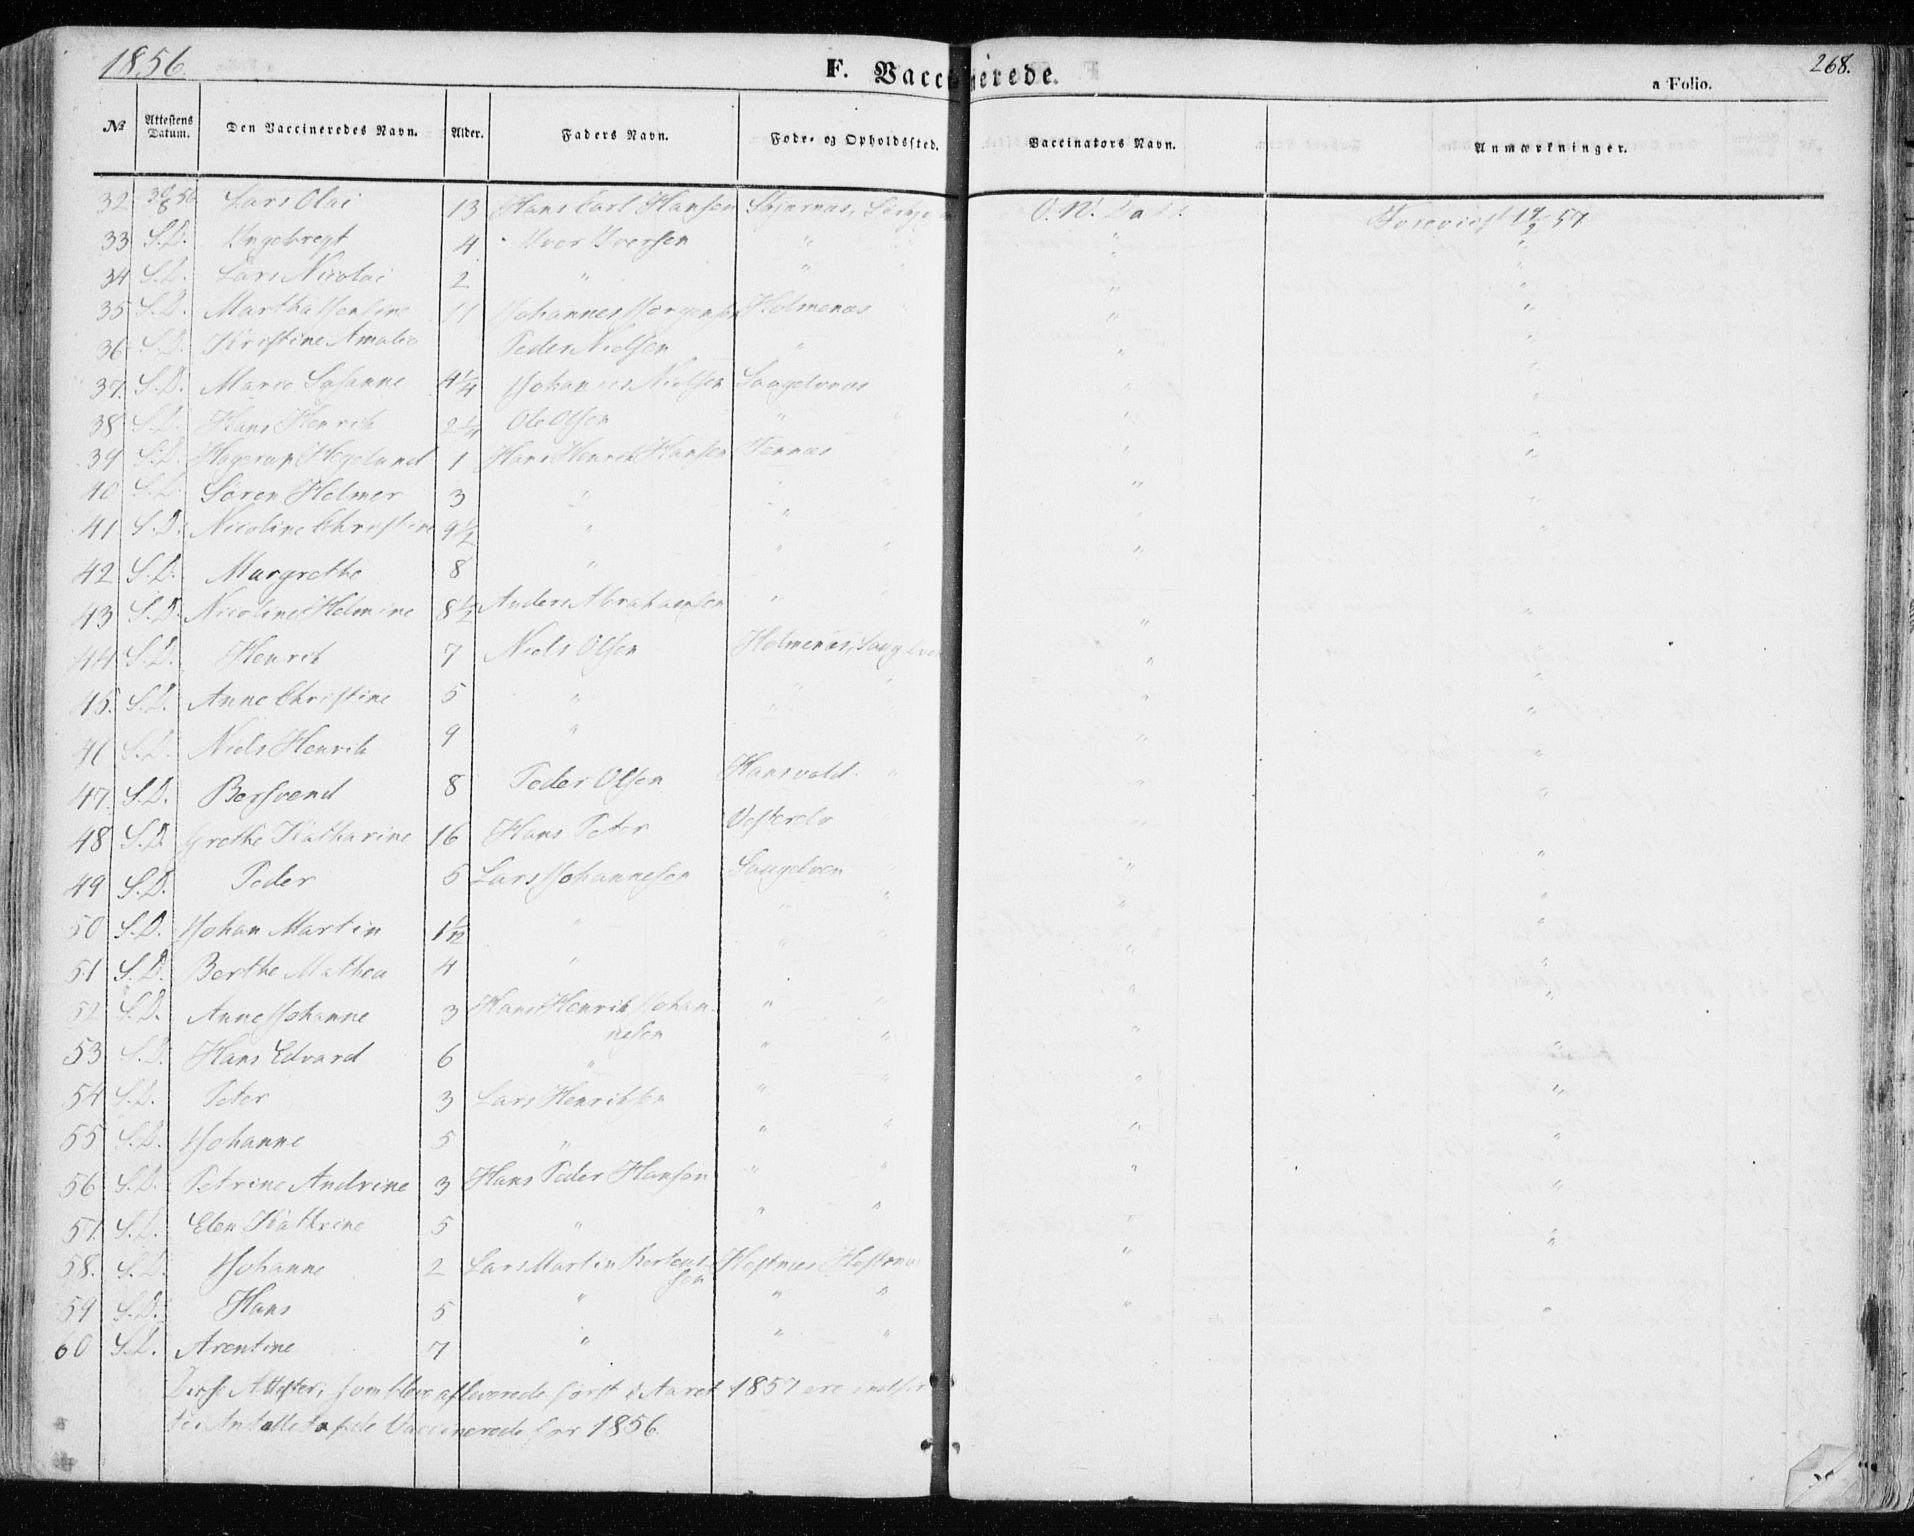 1856
F. Vaccinerede.
268.
a Folio.
No Attestens Datum. Den Vaccineredes Navn. Alder. Faders Navn. Føde- og Opholdssted. Vaccinators Navn. Anmærkninger.
32 30/8 56 Lars Olai 13 Hans Carl Hansen O. N. Forevist 57
33 S.D. Ingebregt 4 Iver Iversen " " "
34 S.D. Lars Nicolai 2 " " " " "
35 S.D. Martha Jensine 11 Johannes Jorgensen Holmenæs " "
36 S.D. Kristine Amalie Peder Nielsen " " "
37. S.D. Marie Susanne 4 1/4 Johannes Nielsen Saugelvnæs " "
38 S.D. Hans Henrik 2 1/4 Ole Olsen " " " "
39 S.D. Hagerup Hegelund 1 Hans Henrik Hansen Tennæs " "
40 S.D. Søren Helmer 3 " " " " "
41 S.D. Nicoline Christine 9 1/2 " " "
42 S.D. Margrethe 8 " " " "
43 S.D. Nicoline Helmine 8 1/2 Anders Abrahamsen " " " "
44 S.D. Henrik 7 Niels Olsen Holmenæs, Saugelven " "
45. S.D. Anne Christine 5 " " " " "
46 S.D. Niels Henrik 9 " " " "
47. S.D. Bersvend 8 Peder Olsen " " "
48 S.D. Grethe Katharine 16 Hans Peter Vesterelv
49 S.D. Peder 5 Lars Johannesen Saugelven " "
50 S.D. Johan Martin 1 1/12 " " " " "
51 S.D. Berthe Mathea 4 " " " "
52 S.D. Anne Johanne 3 Hans Henrik Johan-
nesen " " "
53 S.D. Hans Edvard 6 " " " " "
54 S.D. Peter 3 Lars Henriksen " " " "
55 S.D. Johanne 5 " " " " "
56 S.D. Petrine Andrine 3 Hans Peder Hansen " " " "
57. S.D. Elen Kathrine 5 " " " " "
58. S.D. Johanne 2 Lars Martin Berteus-
sen Hestnæs " "
59 S.D. Hans 5 " " " " "
60 S.D. Arentine 7 " " "
Disse Attester, som bleve afleverede først i Aaret 1857 ere
Antallet af de Vaccinerede for 1856.